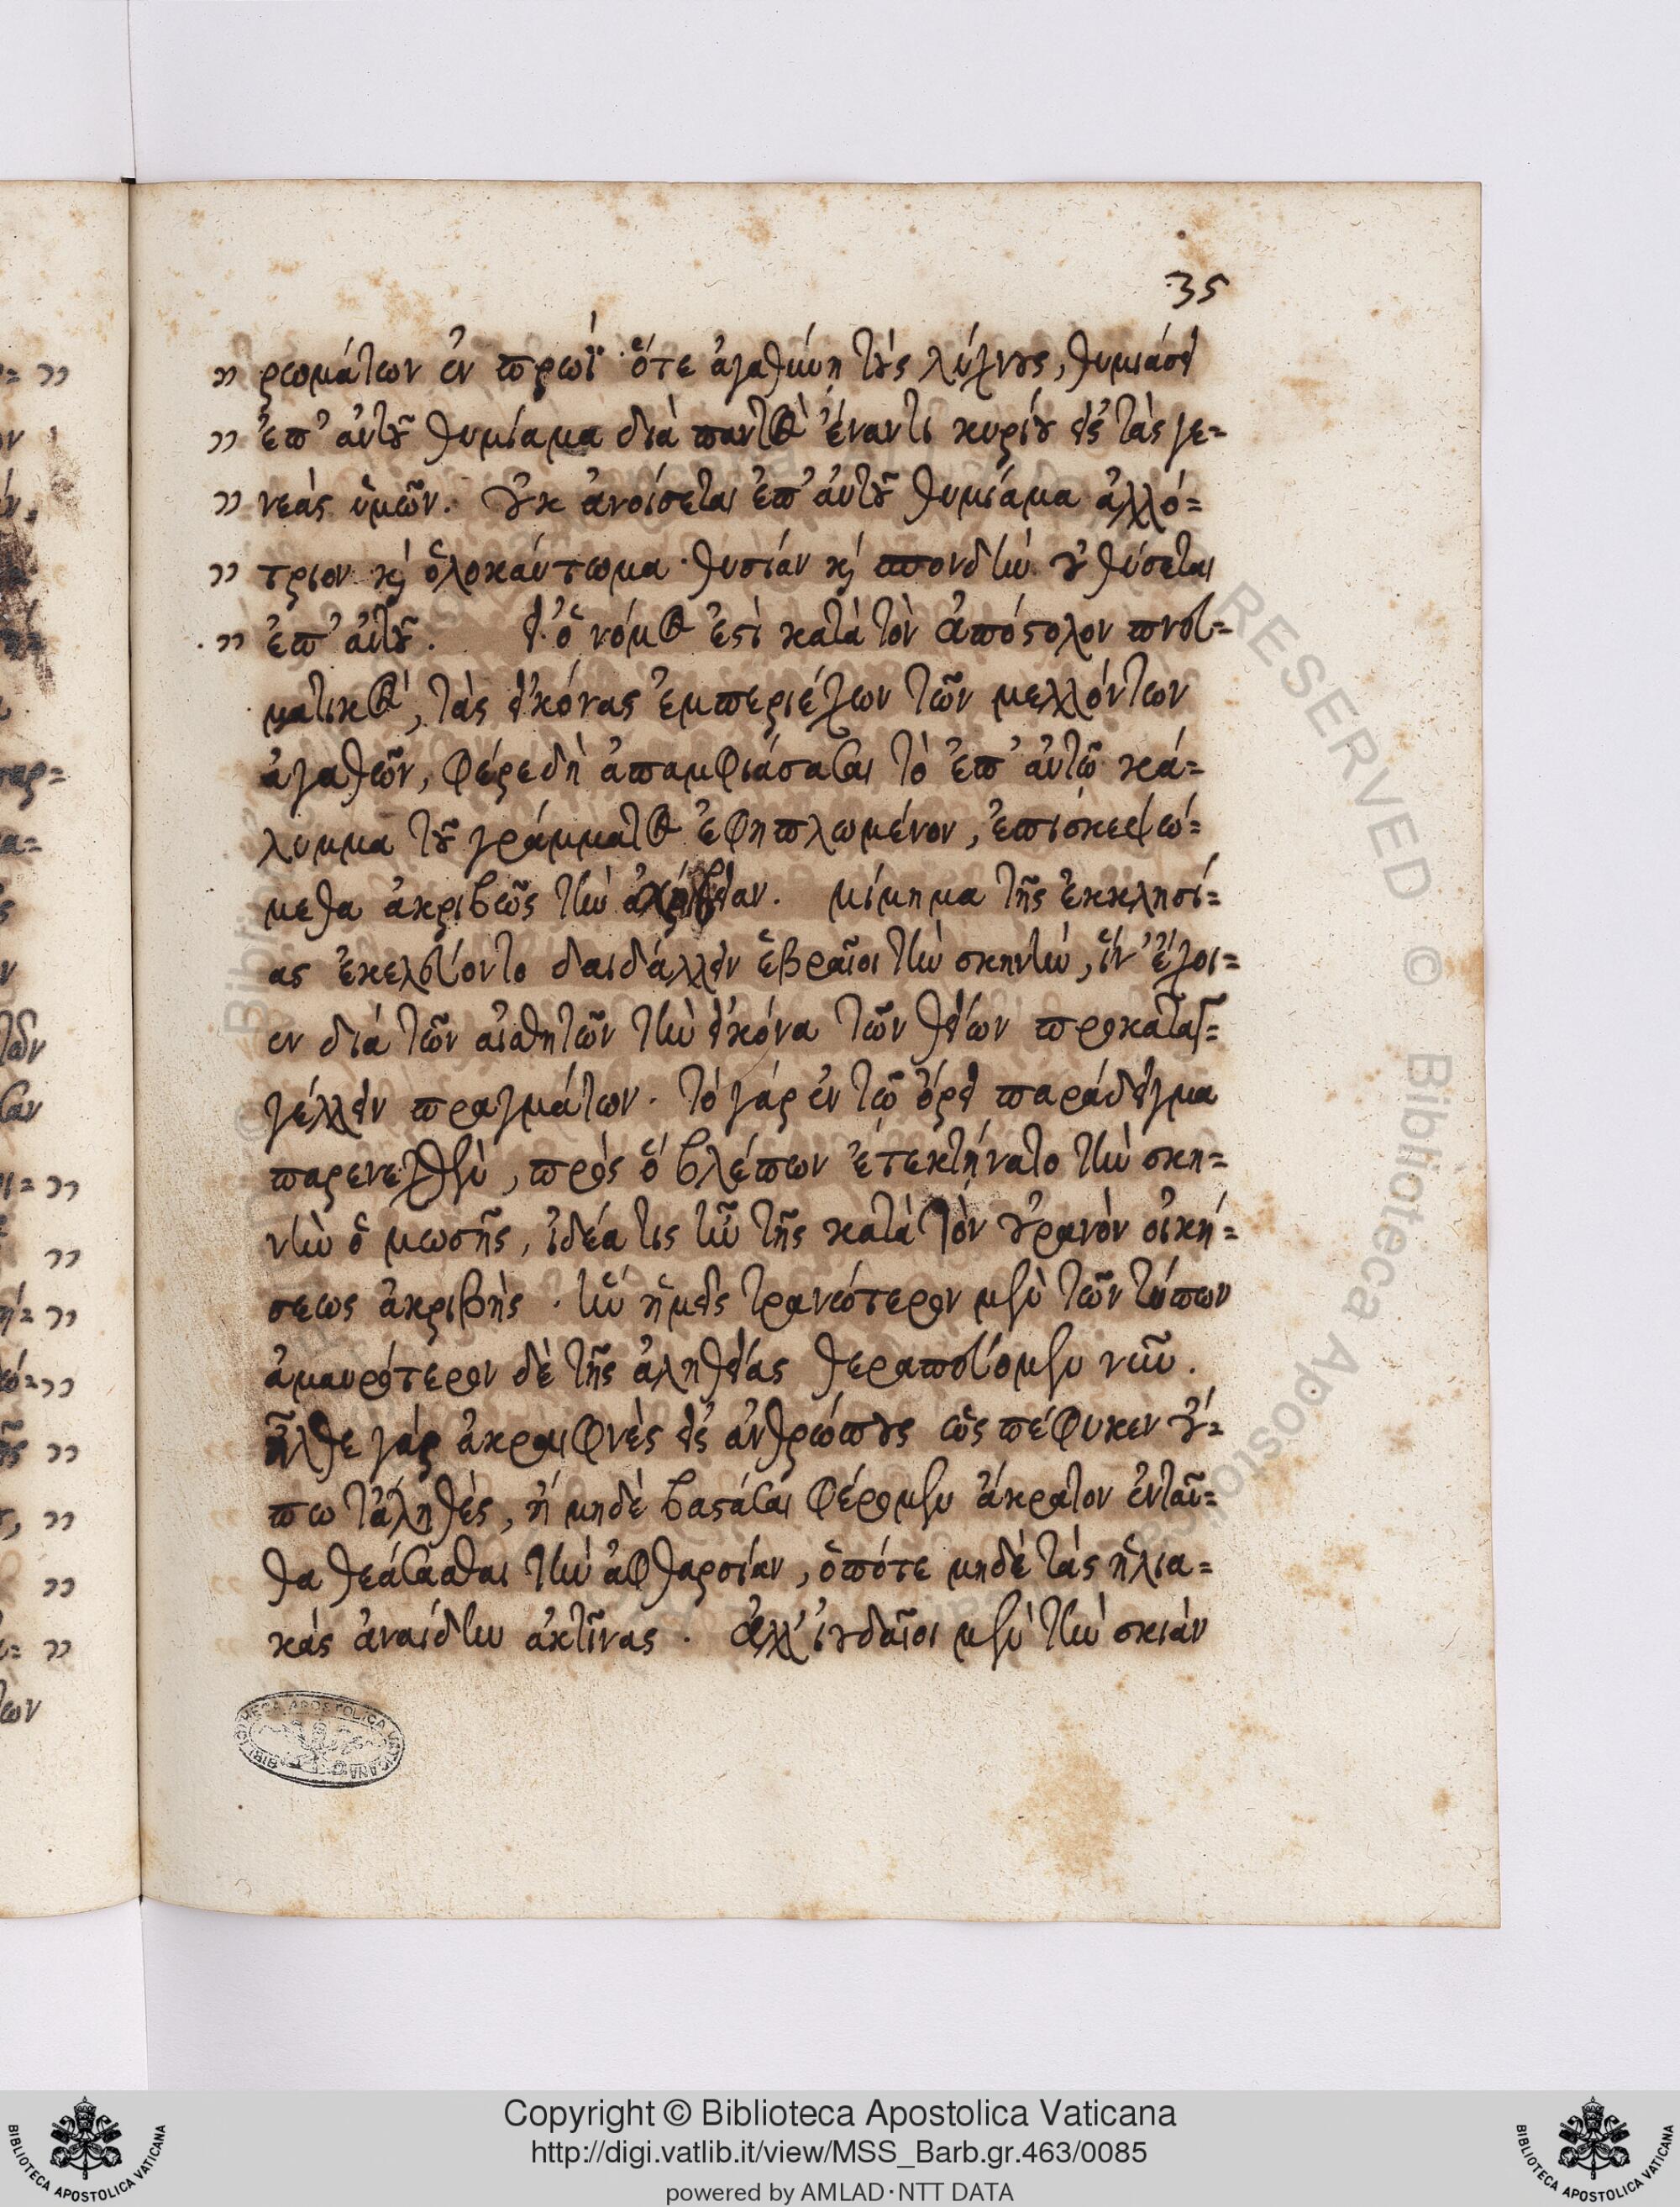 35
" ρωμάτων ἐν πρωῒ· ὅτε ἀγαθύνῃ τοὺς λύχνους, θυμιάσει
" ἐπ' αὐτοῦ θυμίαμα διὰ παντὸς ἔναντι κυρίου εἰς τὰς γε=
" νεὰς ὑμῶν. Οὐκ ἀνοίσεται ἐπ' αὐτοῦ θυμίαμα ἀλλό=
" τριον καὶ ὁλοκαύτωμα· θυσίαν καὶ σπονδὴν οὐ θύσεται
" ἐπ' αὐτοῦ. Εἰ ὁ νόμος ἐστὶ κατὰ τὸν ἀπόστολον πνευ=
ματικὸς, τὰς εἰκόνας ἐμπεριέχων τῶν μελλόντων
ἀγαθῶν, φέρε δὴ ἀπαμφιάσασαι τὸ ἐπ' αὐτῷ κά=
λυμμα τοῦ γράμματος ἐφηπλωμένον, ἐπισκεψώ=
μεθα ἀκριβῶς τὴν. μίμημα τῆς ἐκκλησί=
ας ἐκελεύοντο δαιδάλλειν ἑβραῖοι τὴν σκηνὴν, ἵν' ἔχοι=
εν διὰ τῶν αἰσθητῶν τὴν εἰκόνα τῶν θείων προκαταγ=
γέλλειν πραγμάτων. τὸ γὰρ ἐν τῷ ὄρει παράδειγμα
παρενεχθὲν, πρὸς ὃ βλέπων ἐτεκτήνατο τὴν σκη=
νὴν ὁ μωσῆς, ἰδέα τις ἦν τῆς κατὰ τὸν οὐρανὸν οἰκή=
σεως ἀκριβὴς· ἣν ἡμεῖς τρανώτερον μὲν τῶν τύπων
ἀμαυρότερον δὲ τῆς ἀληθείας θεραπεύομεν νῦν.
ἦλθε γὰρ ἀκραιφνὲς εἰς ἀνθρώπους ὡς πέφυκεν οὔ=
πω τἀληθὲς, ἢ μηδὲ βαστάσαι φέρομεν ἄκρατον ἐνταῦ=
θα θεάσασθαι τὴν ἀφθαρσίαν, ὁπότε μηδὲ τὰς ἡλια=
κὰς ἀναίδην ἀκτῖνας. Ἀλλ' ἰουδαῖοι μὲν τὴν σκιὰν
BIBLIOTHECA APOSTOLICA VATICANA
Copyright © Biblioteca Apostolica Vaticana
http://digi.vatlib.it/view/MSS_Barb.gr.463/0085
powered by AMLAD·NTT DATA
BIBLIOTECA APOSTOLICA VATICANA
BIBLIOTECA APOSTOLICA VATICANA